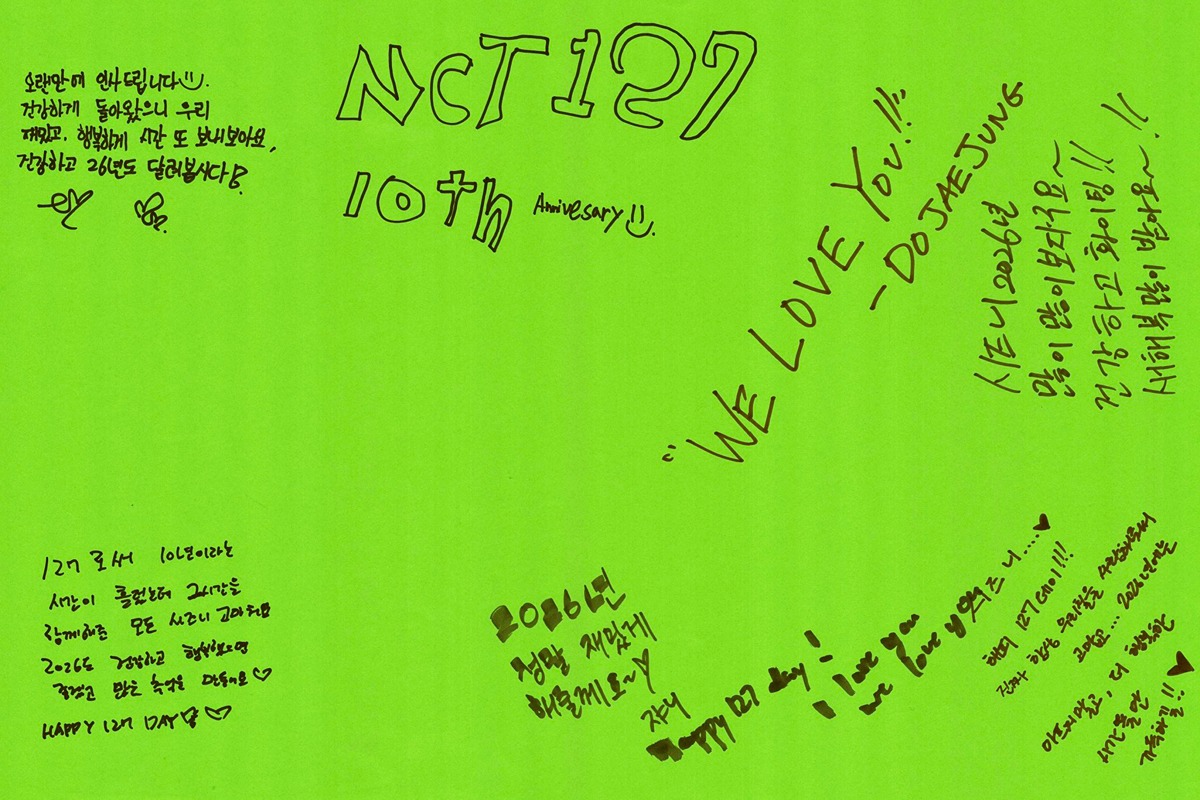 NCT 127
10th Annivesary
오랜만에 인사드립니다
건강하게 돌아왔으니 우리
재밌고, 행복하게 시간 또 보내보아요,
건강하고 26년도 달려봅시다
"WE LOVE YOU!!"
- DOJAEJUNG
시즈니 2026년
많이 많이 보자구요~
건강하고 화이팅!!
새해복 많이 받아요~!!
127로써 10년이라는
시간이 흘렀는데 그시간을
함께해준 모든 시즈니 고마워요
2026도 건강하고 행복했으면
좋겠고 많은 추억을 만들어요♡
HAPPY 127 DAY ♡
2026년
정말 재밌게
해줄께요~♡
쟈니
Happy 127 day!
I love you
we love you 시즈니....♥
해피 127데이!!!
진짜 항상 우리칠을 사랑해줘서
고맙고... 2026년에는
아프지말고, 더 행복한
시간들만
가득하길!! ♥